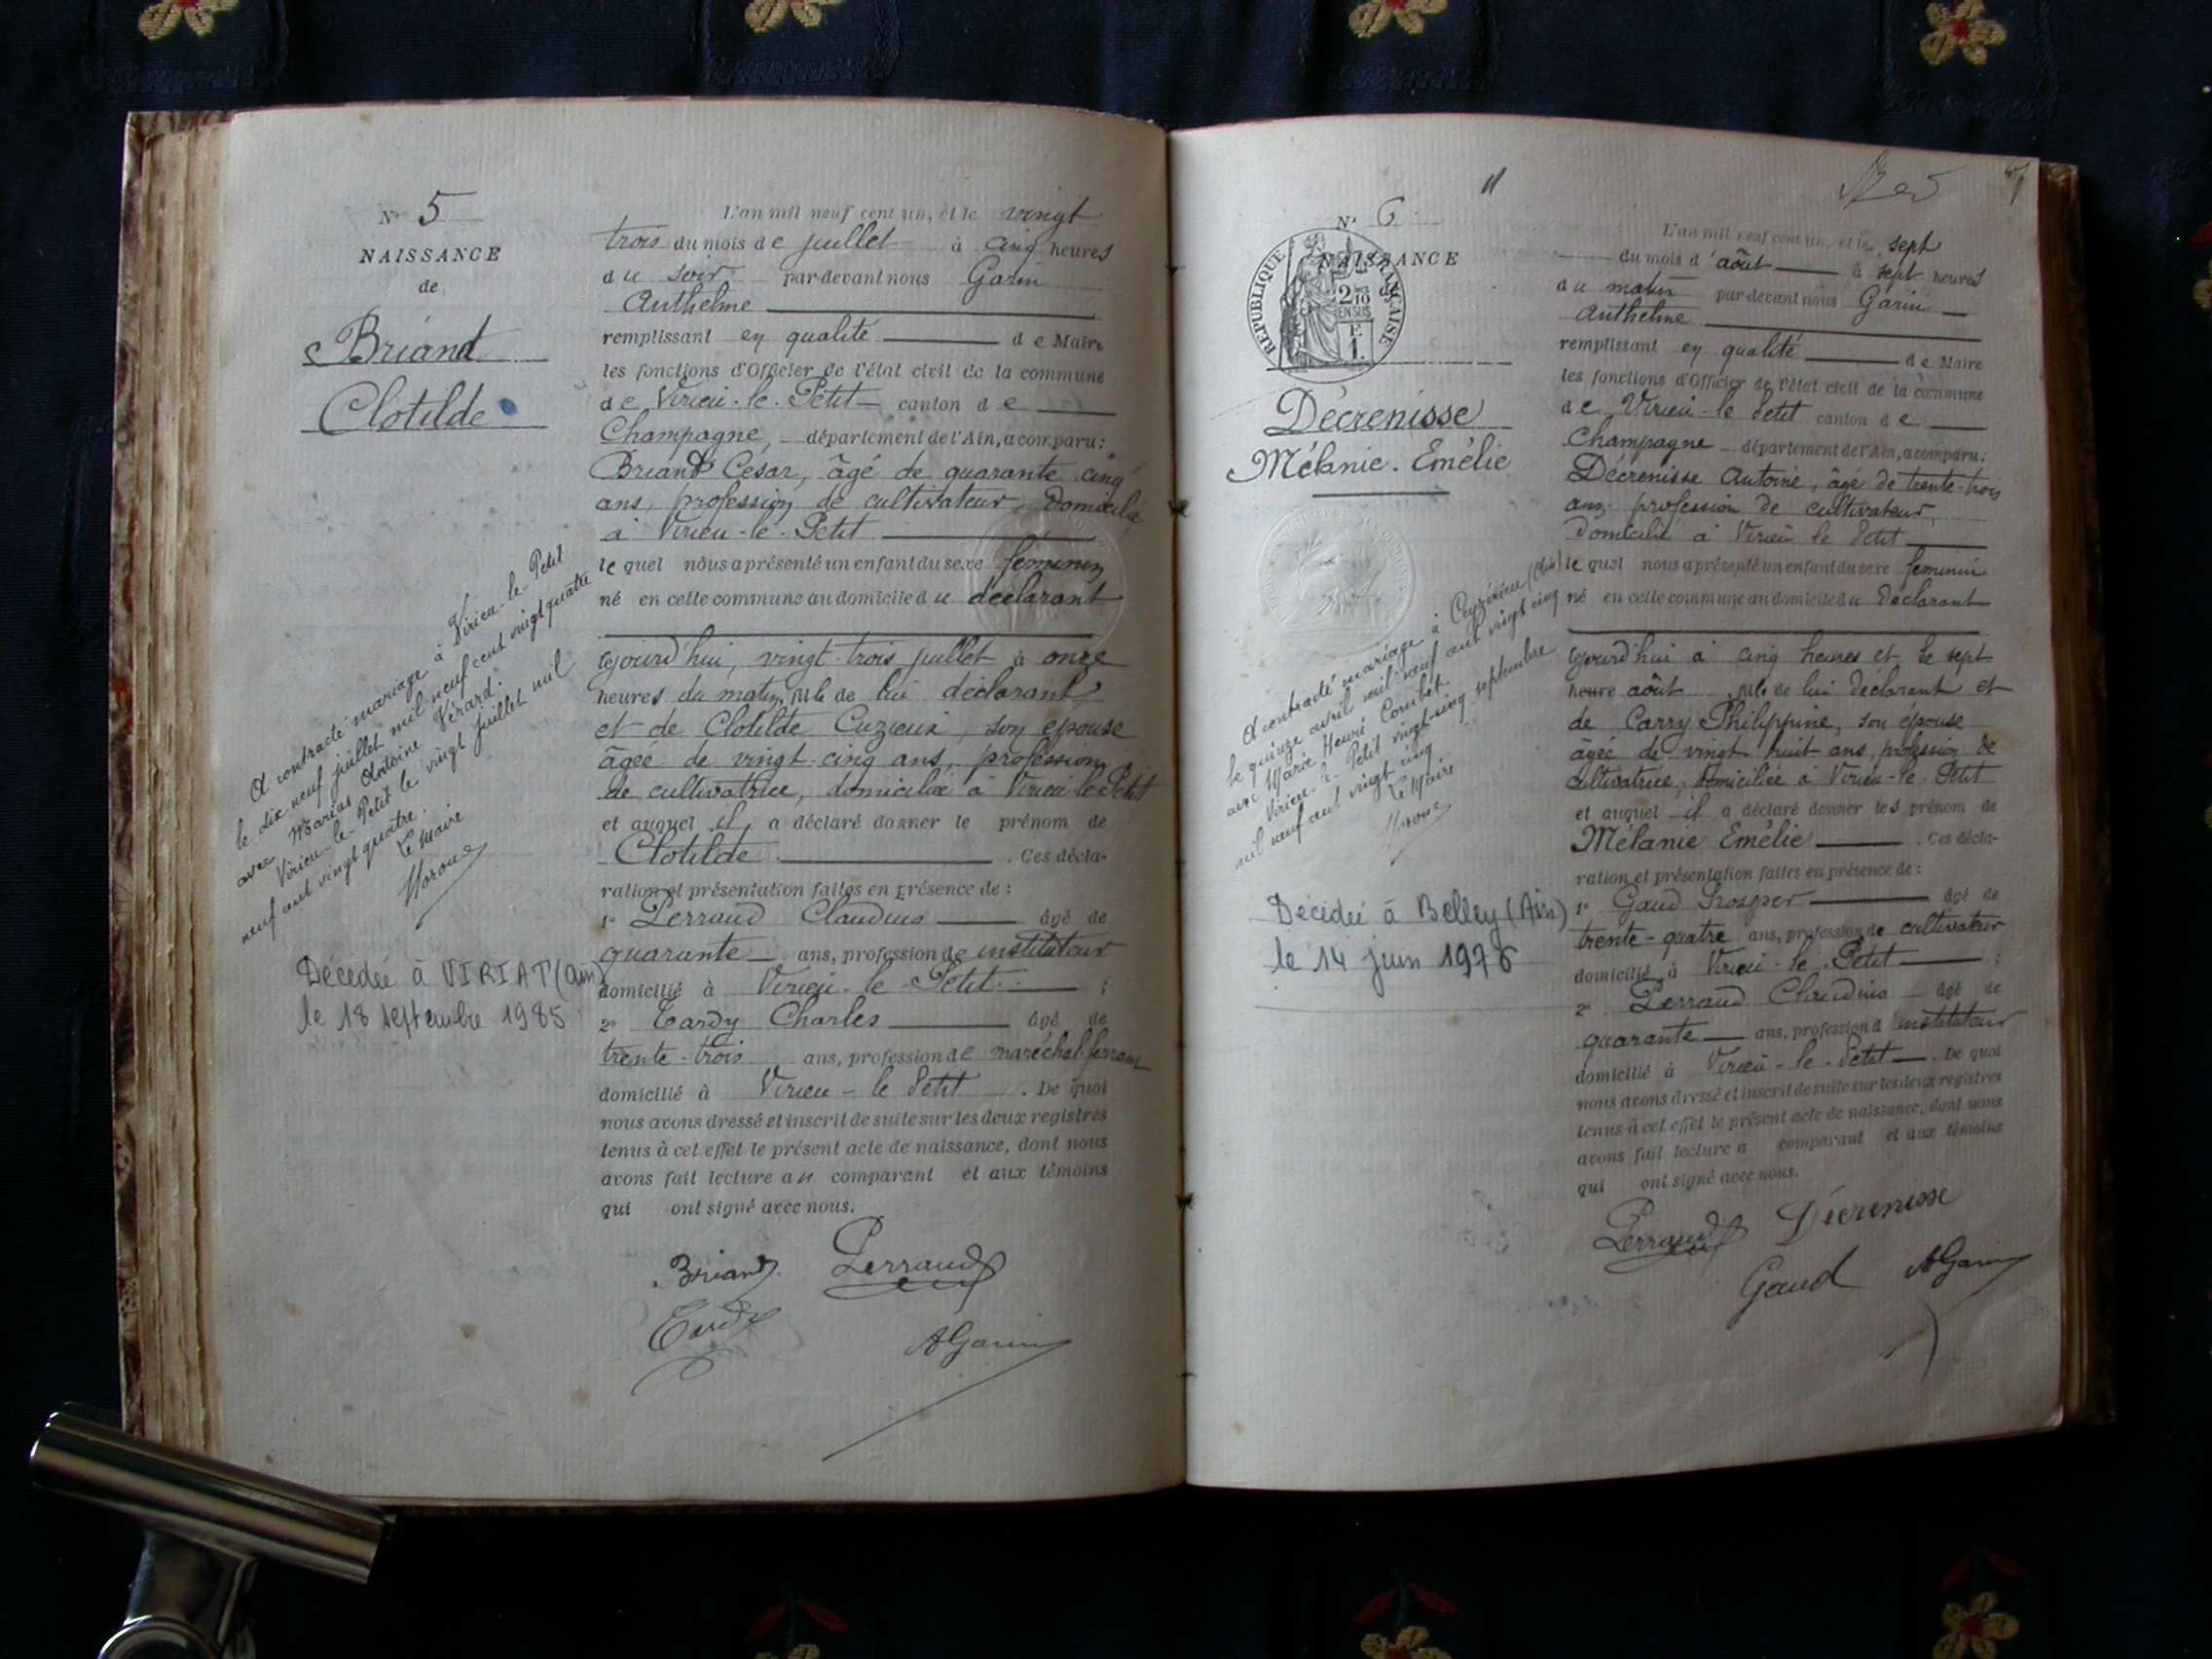 N° 5
NAISSANCE
de
Briand
Clotilde
A contracté mariage à Virieu-le-Petit
le dix neuf juillet mil neuf cent vingt quatre
avec Marius Antoine Vérard.
Virieu-le-Petit le vingt juillet mil
neuf cent vingt quatre.
Le Maire
Décédée à VIRIAT (Ain)
le 18 septembre 1985
L'an mil neuf cent un, et le vingt
trois du mois de juillet à cinq heures
du soir par-devant nous Garin
Anthelme
remplissant en qualité de Maire
les fonctions d'Officier de l'état civil de la commune
de Virieu-le-Petit canton de
Champagne, département de l'Ain, a comparu:
Briand César, âgé de quarante cinq
ans, profession de cultivateur, domicilié
à Virieu-le-Petit
lequel nous a présenté un enfant du sexe féminin
né en cette commune au domicile du déclarant
cejourd'hui, vingt-trois juillet à onze
heures du matin, fille de lui déclarant
et de Clotilde Cuzieux, son épouse
âgée de vingt-cinq ans, profession
de cultivatrice, domiciliée à Virieu-le-Petit
et auquel il a déclaré donner le prénom de
Clotilde. Ces décla-
ration et présentation faites en présence de:
1° Perraud Claudius âgé de
quarante ans, profession de instituteur
domicilié à Virieu-le-Petit;
2° Tardy Charles âgé de
trente-trois ans, profession de maréchal ferrant
domicilié à Virieu-le Petit. De quoi
nous avons dressé et inscrit de suite sur les deux registres
tenus à cet effet le présent acte de naissance, dont nous
avons fait lecture au comparant et aux témoins
qui ont signé avec nous.
Briand Perraud
Tardy
AGarin
N° 6
NAISSANCE
de
RÉPUBLIQUE FRANÇAISE
2/10
EN SUS
F.
1.
Décrenisse
Mélanie-Emélie
A contracté mariage à Ceyzérieu (Ain)
le quinze avril mil neuf cent vingt cinq
avec Marie Henri Combet.
Virieu-le-Petit vingt-cinq septembre
mil neuf cent vingt cinq
Le Maire
Décédée à Belley (Ain)
le 14 juin 1976
L'an mil neuf cent un, et le sept
du mois d'août à sept heures
du matin par-devant nous Garin
Anthelme
remplissant en qualité de Maire
les fonctions d'Officier de l'état civil de la commune
de Virieu-le Petit canton de
Champagne département de l'Ain, a comparu:
Décrenisse Antoine, âgé de trente-trois
ans, profession de cultivateur,
domicilié à Virieu le Petit
lequel nous a présenté un enfant du sexe féminin
né en cette commune au domicile du déclarant
cejourd'hui à cinq heures et le sept
heure août fille de lui déclarant et
de Carry Philippine, son épouse
âgée de vingt huit ans, profession de
cultivatrice, domiciliée à Virieu-le-Petit
et auquel il a déclaré donner les prénom de
Mélanie Emélie. Ces décla-
ration et présentation faites en présence de:
1° Gaud Prosper âgé de
trente-quatre ans, profession de cultivateur
domicilié à Virieu-le-Petit;
2° Perraud Claudius âgé de
quarante ans, profession d'instituteur
domicilié à Virieu-le-Petit. De quoi
nous avons dressé et inscrit de suite sur les deux registres
tenus à cet effet le présent acte de naissance, dont nous
avons fait lecture a comparant et aux témoins
qui ont signé avec nous.
Perraud Décrenisse
Gaud AGarin